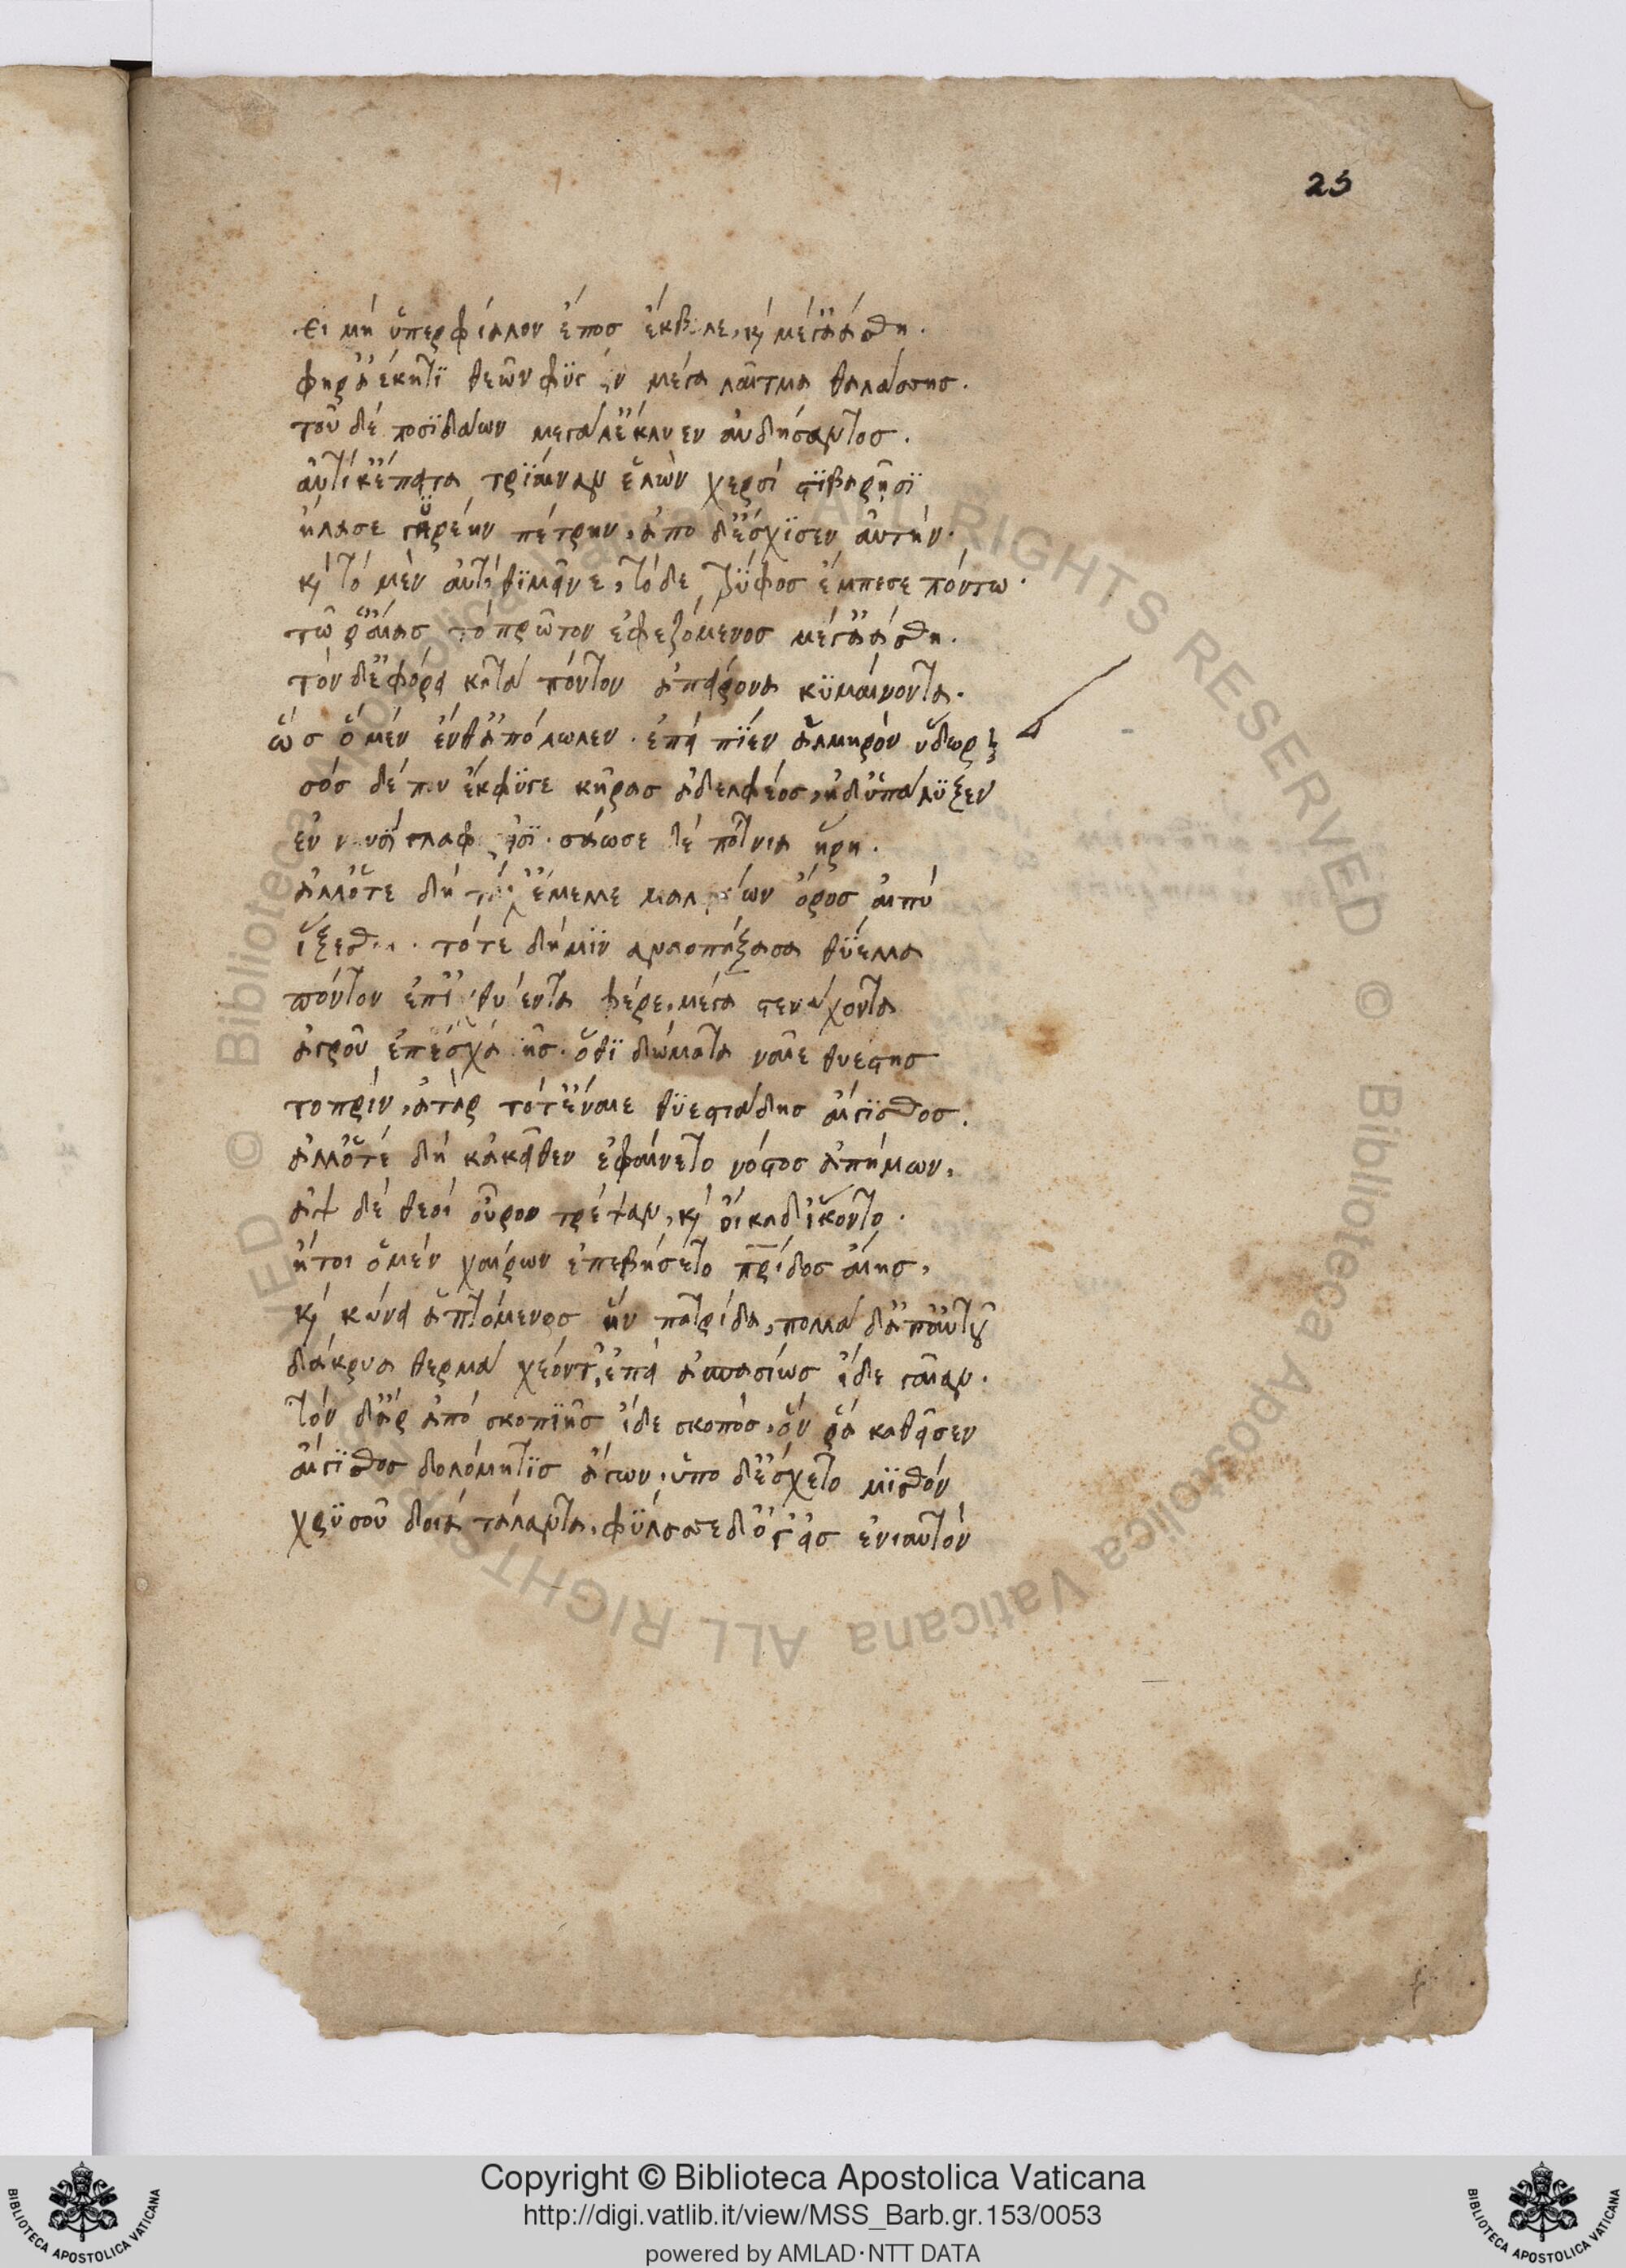 25
εἰ μὴ ὑπερφίαλον ἔπος ἔκβαλε, κ μέγ' ἀάσθη.
φῆ ῥ' ἀέκητϊ θεῶν φϋγέειν μέγα λαῖτμα θαλάσσης.
τοῦ δὲ ποσϊδάων μεγάλ' ἔκλυεν αὐδήσαντος.
αὐτίκ' ἔπειτα τρίαιναν ἑλὼν χερσὶ στϊβαρῆσϊ
ἤλασε γυρέην πέτρην, ἀπο δ' ἔσχϊσεν αὐτήν.
κ τὸ μὲν αὐτόθϊ μεῖνε, τὸ δε τρΰφος ἔμπεσε πόντω.
τῶ ῥ' αἴας τὸ πρῶτον ἐφεζόμενος μέγ' ἀάσθη.
τὸν δ' ἐφόρει κατὰ πόντον ἀπείρονα κϋμαίνοντα.
ὣς ὁ μὲν ἔνθ' ἀπόλωλεν. ἐπεὶ πΐεν ἁλμηρὸν ὕδωρ
σὸς δέ που ἔκφϋγε κῆρας ἀδελφεὸς, ἠδ' ὑπάλϋξεν
ἐν νηυσὶ γλαφυρῆσϊ. σάωσε δὲ πότνια ἥρη.
ἀλλ' ὅτε δὴ τάχ' ἔμελλε μαλειάων ὄρος αἰπὺ
ἵξεσθαι. τότε δή μϊν ἀναρπάξασα θϋέλλα
πόντον ἐπ' ἰχθυόεντα φέρε, μέγα στενάχοντα
ἀγροῦ ἐπ' ἐσχατιῆς. ὅθϊ δώματα ναῖε θυέστης
τοπρὶν, ἀτὰρ τότ' ἔναιε θϋεστιάδης αἴγϊσθος.
ἀλλ' ὅτε δὴ κἀκεῖθεν ἐφαίνετο νόστος ἀπήμων,
ἂψ δὲ θεοὶ οὖρον στρέψαν, κ οἴκαδ' ἵκοντο.
ἤτοι ὁ μὲν χαίρων ἐπεβήσετο πρίδος αἴης,
κ κύνει ἁπτόμενος ἣν πατρίδα, πολλὰ δ' ἀπ' αὐτοῦ
δάκρυα θερμὰ χέοντ', ἐπεὶ ἀσπασίως ἴδε γαῖαν.
τὸν δ' ἄρ ἀπὸ σκοπϊῆς ἴδε σκοπὸς, ὅν ῥα καθεῖσεν
αἴγϊσθος δολόμητϊς ἄγων, ὑπο δ' ἔσχετο μϊσθὸν
χρϋσοῦ δοιὰ τάλαντα. φΰλασσε δ' ὅγ' εἰς ἐνιαυτὸν
Copyright © Biblioteca Apostolica Vaticana
http://digi.vatlib.it/view/MSS_Barb.gr.153/0053
powered by AMLAD·NTT DATA